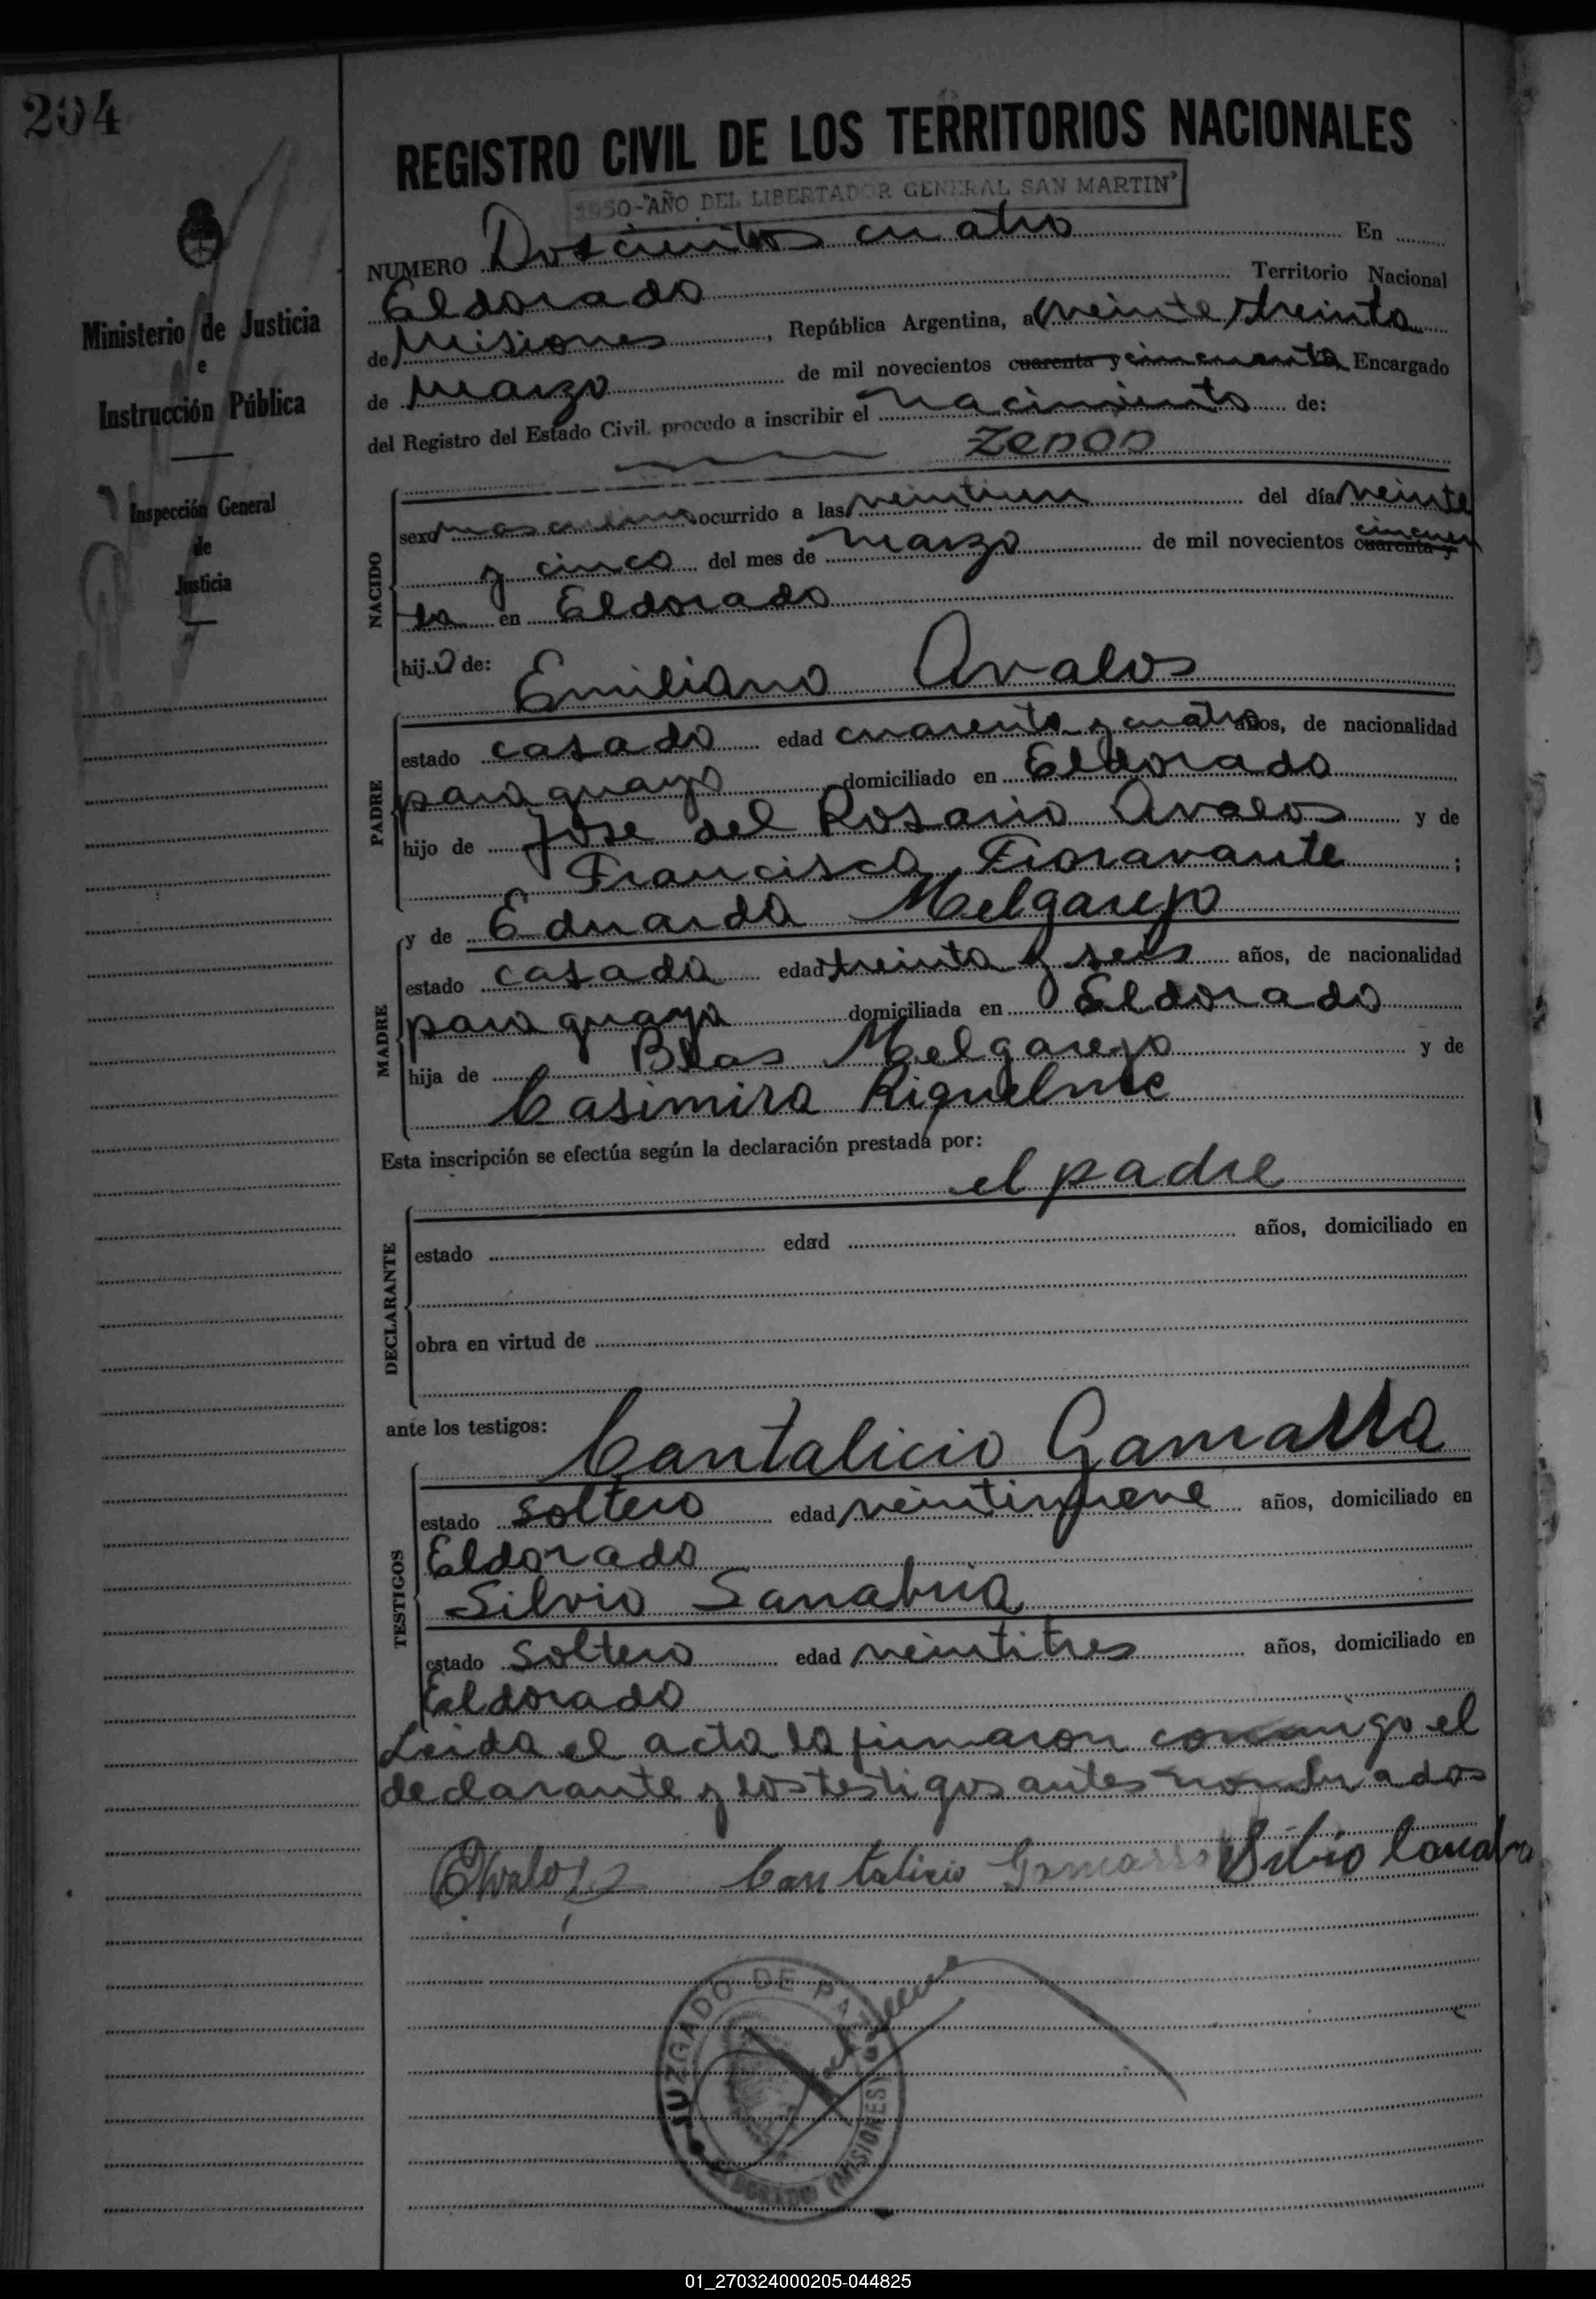 204
REGISTRO CIVIL DE LOS TERRITORIOS NACIONALES
1950-"AÑO DEL LIBERTADOR GENERAL SAN MARTIN"
Ministerio de Justicia
e
Instrucción Pública
Inspección General
de
Justicia
NUMERO Doscientos cuatro En
Eldorado Territorio Nacional
de Misiones, República Argentina, a veinte treinta
de Marzo de mil novecientos cuarenta y cincuenta Encargado
del Registro del Estado Civil, procedo a inscribir el nacimiento de:
Zenon
NACIDO
sexo masculino ocurrido a las veintiun del día veinte
y cinco del mes de marzo de mil novecientos cuarenta y cincuen
ta en Eldorado
hijo de: Emiliano Avalos
PADRE
estado casado edad cuarenta y cuatro años, de nacionalidad
paraguayo domiciliado en Eldorado
hijo de Jose del Rosario Avalos y de
Francisca Fioravante;
y de Eduarda Melgarejo
MADRE
estado casada edad treinta y seis años, de nacionalidad
paraguaya domiciliada en Eldorado
hija de Blas Melgarejo y de
Casimira Riquelme
Esta inscripción se efectúa según la declaración prestada por:
el padre
DECLARANTE
estado edad años, domiciliado en
obra en virtud de
ante los testigos:
Cantalicio Gamarra
TESTIGOS
estado soltero edad veintinueve años, domiciliado en
Eldorado
Silvio Sanabria
estado soltero edad veintitres años, domiciliado en
Eldorado
Leida el acta la firmaron conmigo el
declarante y los testigos antes nombrados
EAvalos Cantalicio Gamarra Silvio Sanabria
JUZGADO DE PAZ
ELDORADO (MISIONES)
01_270324000205-044825